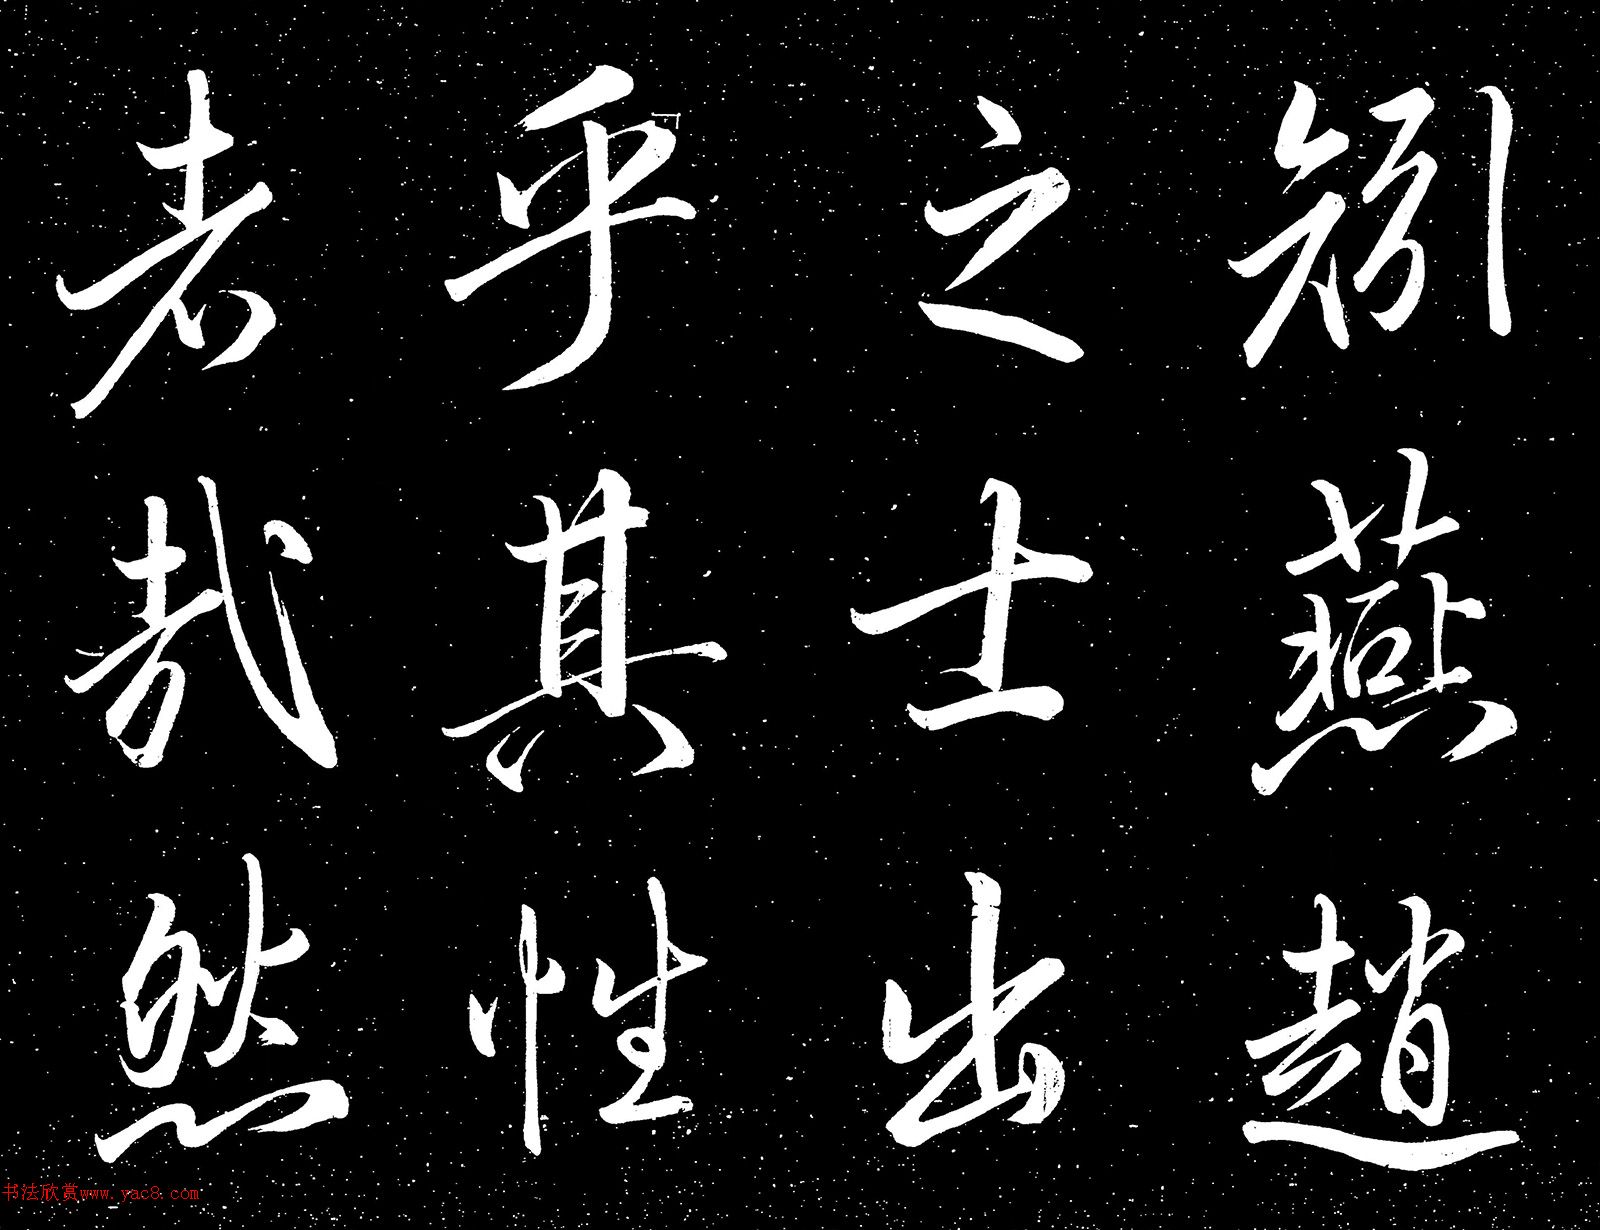 矧燕趙
之士出
乎其性
者哉然
书法欣赏www.yac8.com